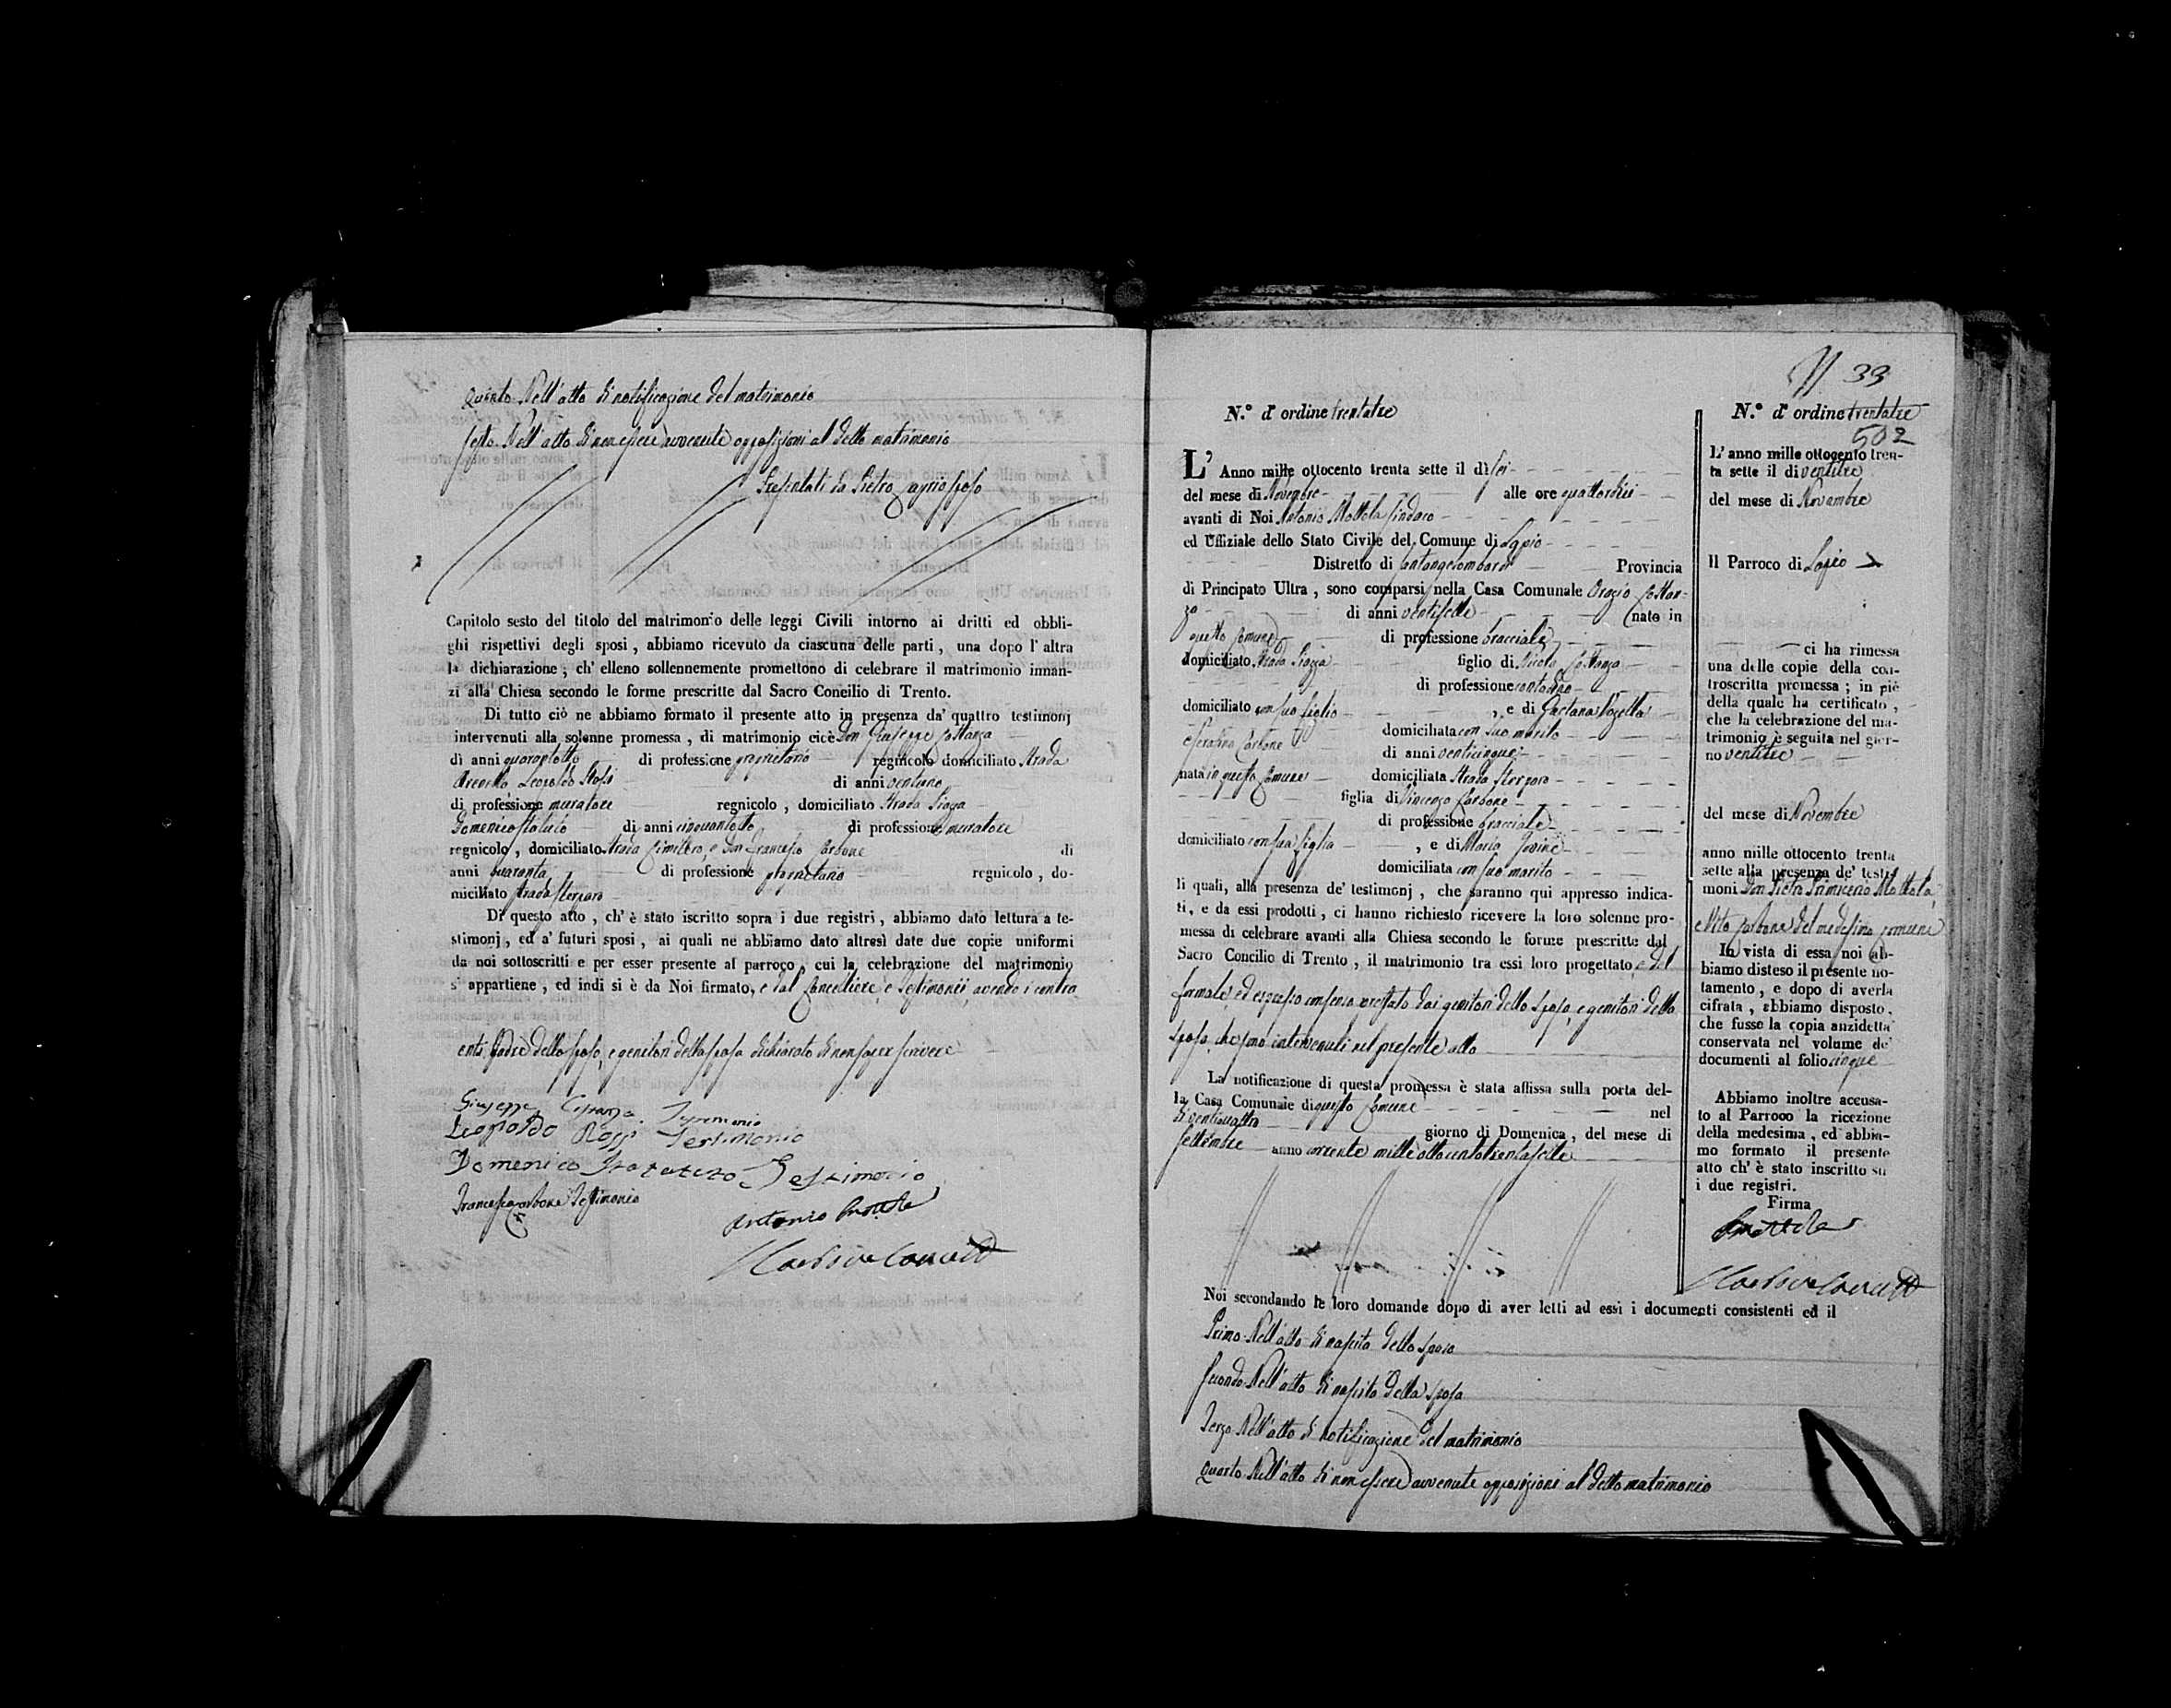 Quinto Nell'atto di notificazione del matrimonio
Sesto Nell'atto di non essere avvenute opposizioni al detto matrimonio
Presentati da Pietro sposo
Capitolo sesto del titolo del matrimonio delle leggi Civili intorno ai dritti ed obbli-
ghi rispettivi degli sposi, abbiamo ricevuto da ciascuna delle parti, una dopo l'altra
la dichiarazione; ch'elleno sollennemente promettono di celebrare il matrimonio innan-
zi alla Chiesa secondo le forme prescritte dal Sacro Concilio di Trento.
Di tutto ciò ne abbiamo formato il presente atto in presenza da' quattro testimonj
intervenuti alla solenne promessa, di matrimonio cioè Don Giuseppe Costanza
di anni quarantotto di professione proprietario regnicolo domiciliato Strada
Leopoldo Rossi di anni ventuno
di professione muratore regnicolo, domiciliato Strada Piazza
Domenico di anni cinquantotto di professione muratore
regnicolo, domiciliato Strada Cimitero, e Don Francesco Carbone di
anni quaranta di professione proprietario regnicolo, do-
miciliato Strada Sterparo
Di questo atto, ch'è stato iscritto sopra i due registri, abbiamo dato lettura a te-
stimonj, ed a' futuri sposi, ai quali ne abbiamo dato altresì date due copie uniformi
da noi sottoscritti e per esser presente al parroco, cui la celebrazione del matrimonio
s'appartiene, ed indi si è da Noi firmato, e dal Cancelliere, e Testimonii, avendo i contra
enti, Padre dello sposo, e genitori della sposa dichiarato di non saper scrivere
Giuseppe Costanza Testimonio
Leopoldo Rossi Testimonio
Domenico Testimonio
Francesco Carbone Testimonio
Antonio Mottola
N 33
N.° d'ordine trentatre
L'Anno mille ottocento trenta sette il dì sei
del mese di Novembre alle ore quattordici
avanti di Noi Antonio Mottola Sindaco
ed Uffiziale dello Stato Civile del Comune di Lapio
Distretto di Santangelombardi Provincia
di Principato Ultra, sono comparsi nella Casa Comunale Orazio Costan=
za di anni ventisette nato in
questo Comune di professione bracciale
domiciliato Strada Piazza figlio di Nicola Costanza
di professione contadino
domiciliato con suo figlio, e di Gaetana
domiciliata con suo marito
e Serafina Carbone di anni venticinque
nata in questo Comune domiciliata Strada Sterparo
figlia di Vincenzo Carbone
di professione bracciale
domiciliato con sua figlia, e di Maria Iovine
domiciliata con suo marito
li quali, alla presenza de' testimonj, che saranno qui appresso indica-
ti, e da essi prodotti, ci hanno richiesto ricevere la loro solenne pro-
messa di celebrare avanti alla Chiesa secondo le forme prescritte dal
Sacro Concilio di Trento, il matrimonio tra essi loro progettato, e del
formale, ed espresso consenso prestato dai genitori dello sposo, e genitori della
sposa, che sono intervenuti nel presente atto
La notificazione di questa promessa è stata affissa sulla porta del-
la Casa Comunale di questo Comune nel
dì ventiquattro giorno di Domenica, del mese di
Settembre anno corrente mille ottocento trentasette
Noi secondando le loro domande dopo di aver letti ad essi i documenti consistenti ed il
Primo Nell'atto di nascita dello sposo
Secondo Nell'atto di nascita della sposa
Terzo Nell'atto di notificazione del matrimonio
Quarto Nell'atto di non essere avvenute opposizioni al detto matrimonio
N.° d'ordine trentatre
502
L'anno mille ottogento tren-
ta sette il di ventitre
del mese di Novembre
Il Parroco di Lapio
ci ha rimessa
una delle copie della con-
troscritta promessa; in piè
della quale ha certificato,
che la celebrazione del ma-
trimonio è seguita nel gior-
no ventitre
del mese di Novembre
anno mille ottocento trenta
sette alla presenza de' testi-
moni Don Pietro Primicerio Mottola,
e Vito Carbone del medesimo Comune
In vista di essa noi ab-
biamo disteso il presente no-
tamento, e dopo di averla
cifrata, abbiamo disposto,
che fusse la copia anzidetta
conservata nel volume de'
documenti al folio cinque
Abbiamo inoltre accusa-
to al Parroco la ricezione
della medesima, ed abbia-
mo formato il presente
atto ch'è stato inscritto su
i due registri.
Firma
Mottola